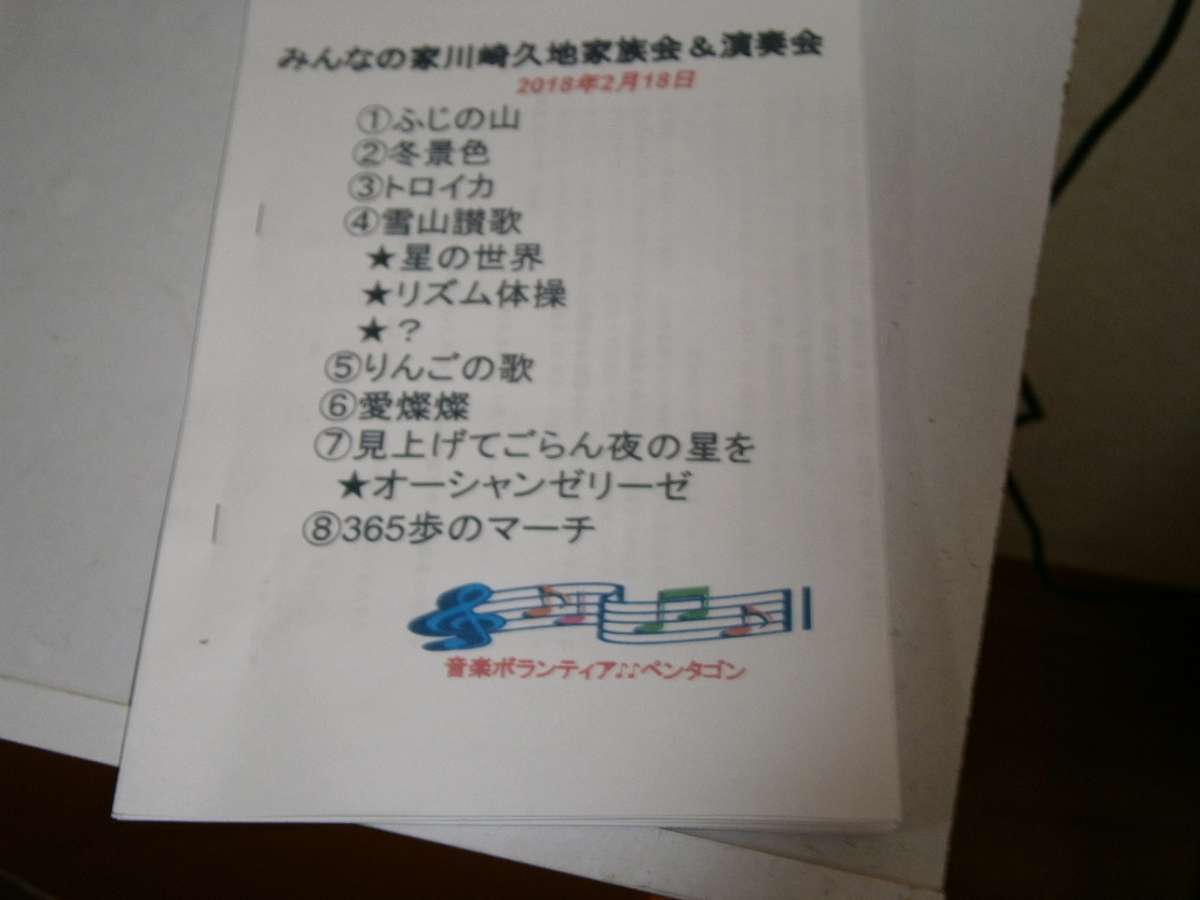 みんなの家川崎久地家族会＆演奏会
2018年2月18日
①ふじの山
②冬景色
③トロイカ
④雪山讃歌
★星の世界
★リズム体操
★？
⑤りんごの歌
⑥愛燦燦
⑦見上げてごらん夜の星を
★オーシャンゼリーゼ
⑧365歩のマーチ
音楽ボランティア♪♪ペンタゴン